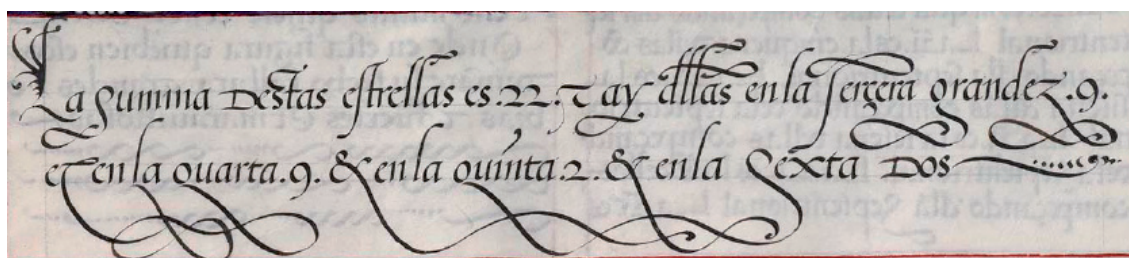 La Summa Destas estrellas es .22. & ay dellas en la tercera grandez .9.
et en la quarta .9. & en la quinta .2. & en la Sexta Dos